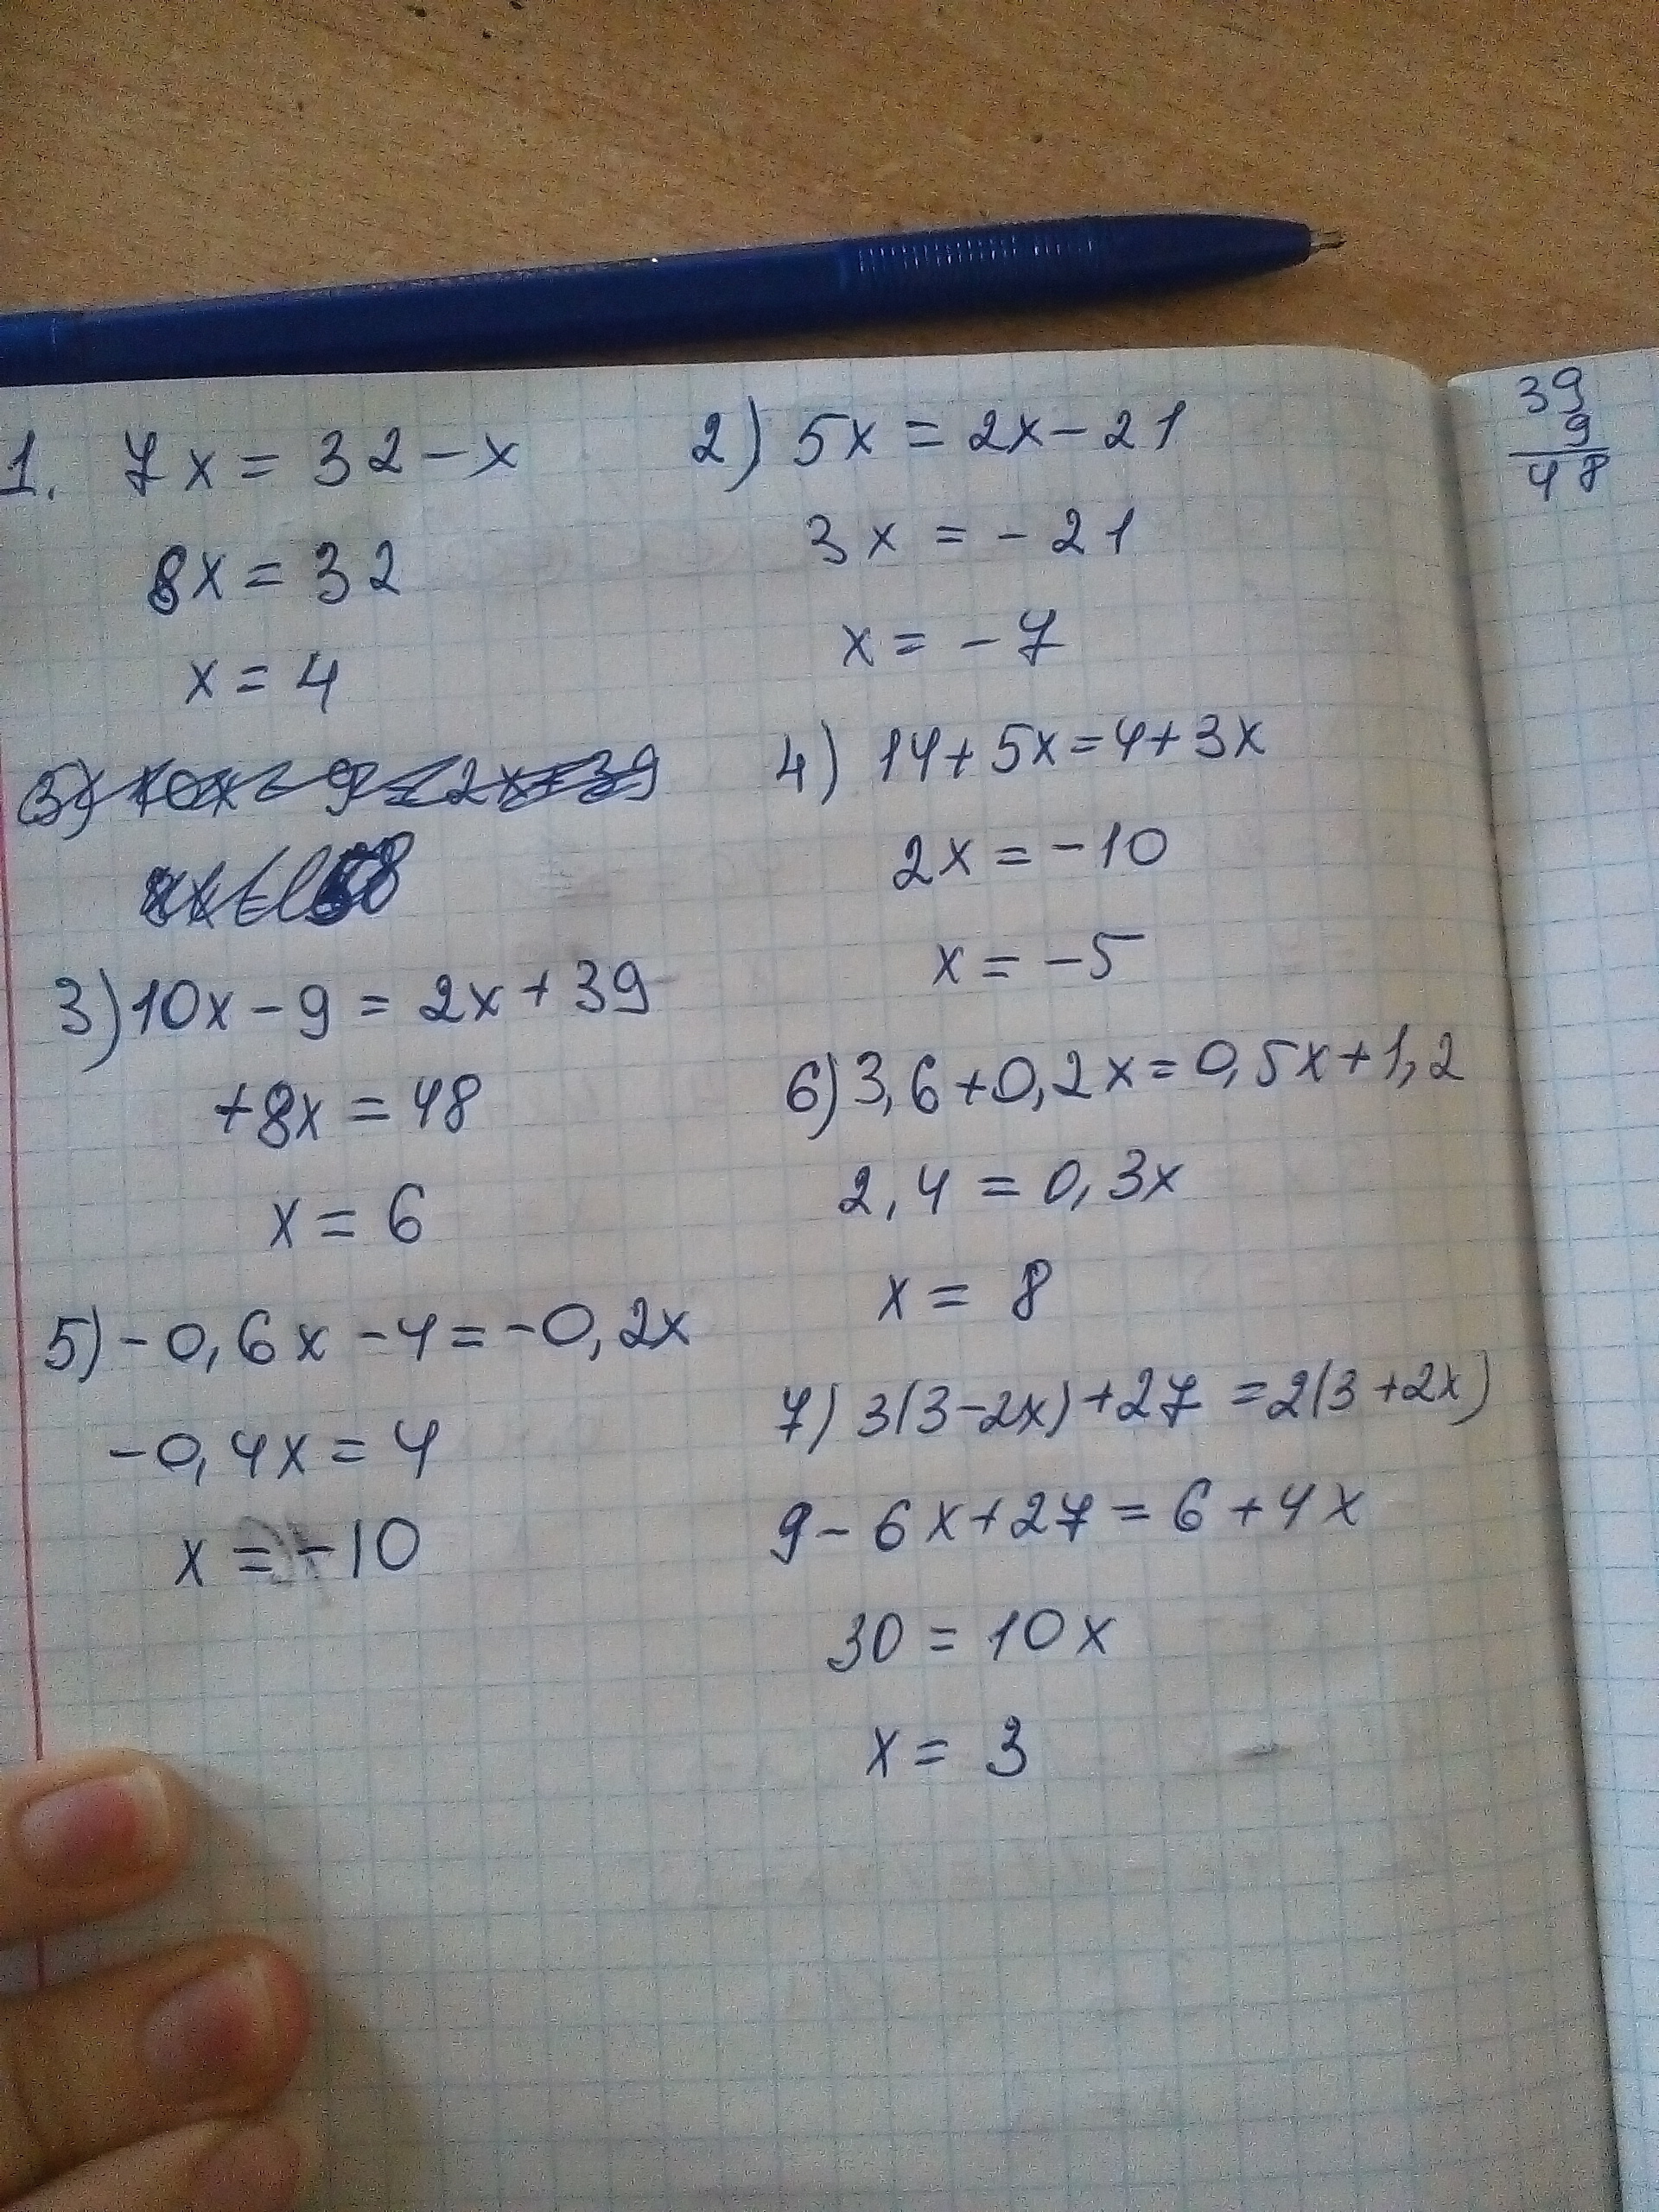 1. 7x = 32 - x
8x = 32
x = 4
2) 5x = 2x - 21
3x = - 21
x = - 7
3) 10x - 9 = 2x + 39
4) 14 + 5x = 4 + 3x
2x = -10
x = -5
3) 10x - 9 = 2x + 39
+8x = 48
x = 6
6) 3,6 + 0,2x = 0,5x + 1,2
2,4 = 0,3x
x = 8
5) -0,6x - 4 = -0,2x
-0,4x = 4
x = -10
7) 3(3-2x) + 27 = 2(3+2x)
9 - 6x + 27 = 6 + 4x
30 = 10x
x = 3
39
9
48